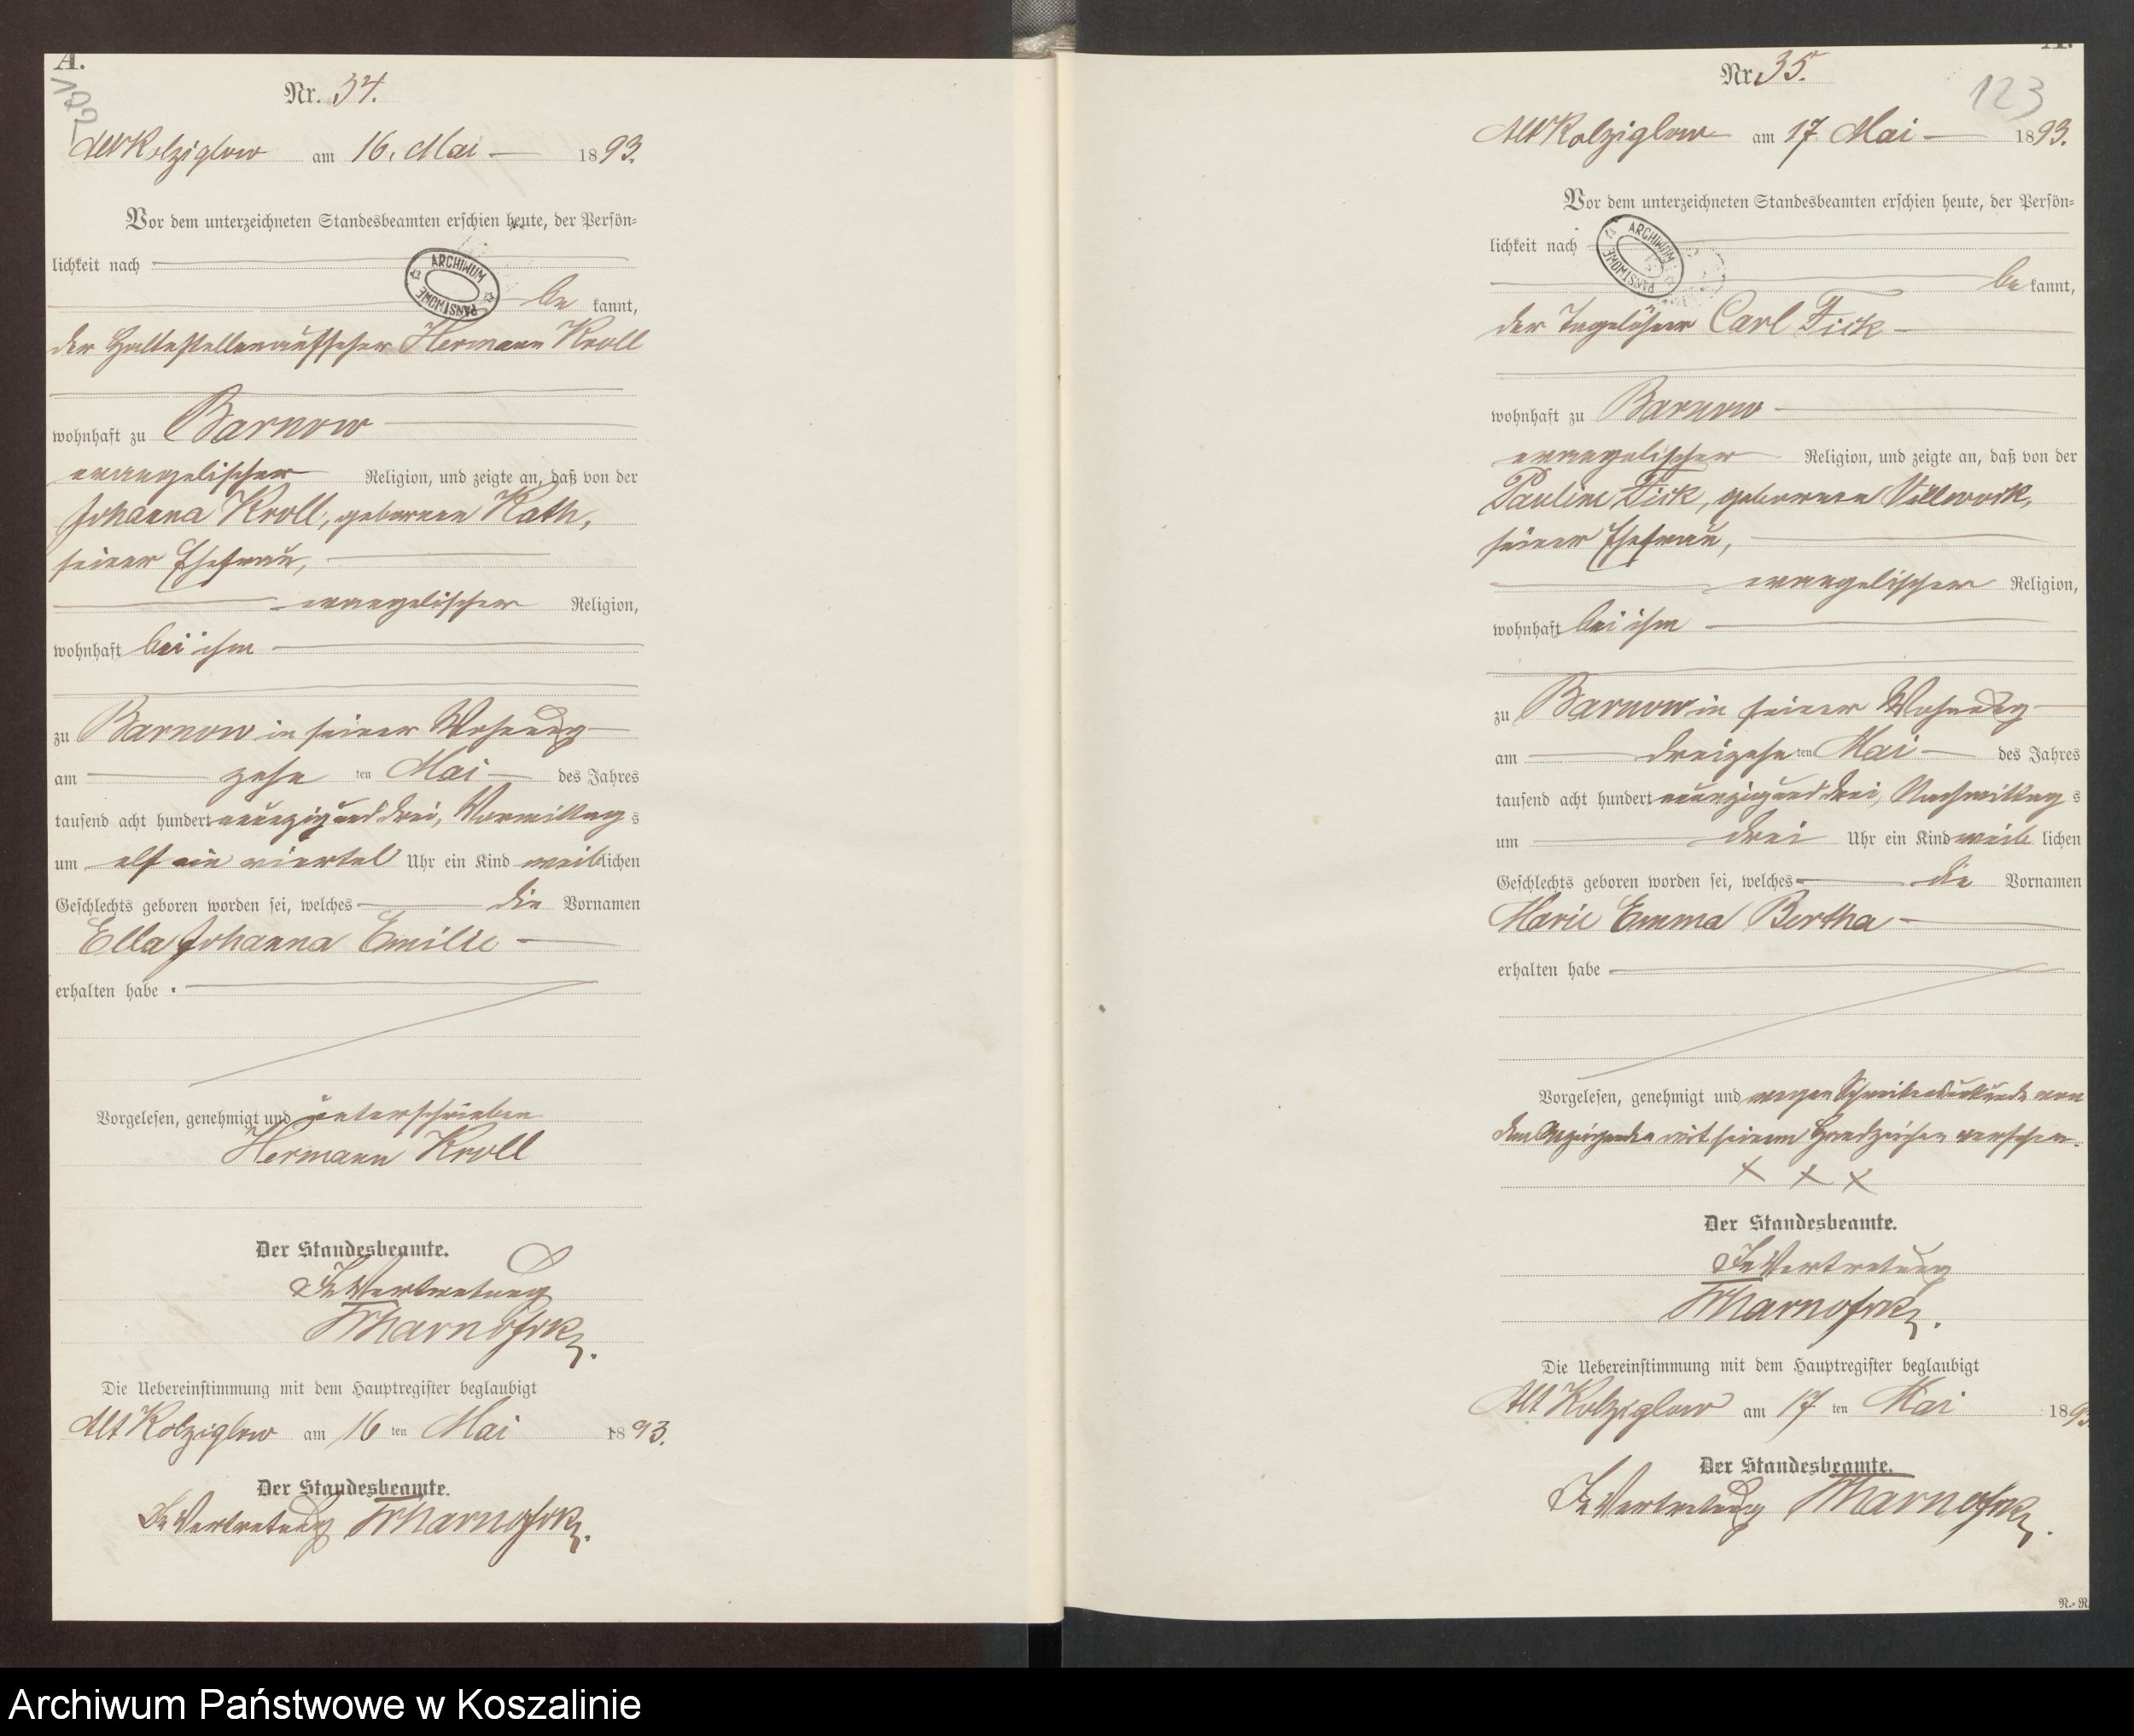 A.
Nr. 34.
Alt Kolziglow am 16. Mai 1893.
Vor dem unterzeichneten Standesbeamten erschien heute, der Persön-
lichkeit nach
ARCHIWUM PAŃSTWOWE
be kannt,
der Haltestellenaufseher Hermann Kroll
wohnhaft zu Barnow
evangelischer Religion, und zeigte an, daß von der
Johanna Kroll, geborenen Rath,
seiner Ehefrau,
evangelischer Religion,
wohnhaft bei ihm
zu Barnow in seiner Wohnung
am zehn ten Mai des Jahres
tausend acht hundert neunzig und drei, Vormittag s
um elf ein viertel Uhr ein Kind weiblichen
Geschlechts geboren worden sei, welches die Vornamen
Ella Johanna Emilie
erhalten habe.
Vorgelesen, genehmigt und unterschrieben
Hermann Kroll
Der Standesbeamte.
In Vertretung
Die Uebereinstimmung mit dem Hauptregister beglaubigt
Alt Kolziglow am 16 ten Mai 1893.
Der Standesbeamte.
In Vertretung
A.
Nr. 35.
123
Alt Kolziglow am 17. Mai 1893.
Vor dem unterzeichneten Standesbeamten erschien heute, der Persön-
lichkeit nach
ARCHIWUM PAŃSTWOWE
be kannt,
der Tagelöhner Carl Fick
wohnhaft zu Barnow
evangelischer Religion, und zeigte an, daß von der
Pauline Fick, geborenen Villwock,
seiner Ehefrau,
evangelischer Religion,
wohnhaft bei ihm
zu Barnow in seiner Wohnung
am dreizehn ten Mai des Jahres
tausend acht hundert neunzig und drei, Nachmittag s
um drei Uhr ein Kind weib lichen
Geschlechts geboren worden sei, welches die Vornamen
Marie Emma Bertha
erhalten habe
Vorgelesen, genehmigt und wegen Schreibensunkunde von
dem Anzeigenden mit seinem Handzeichen versehen.
x x x
Der Standesbeamte.
In Vertretung
Die Uebereinstimmung mit dem Hauptregister beglaubigt
Alt Kolziglow am 17 ten Mai 1893
Der Standesbeamte.
In Vertretung
Archiwum Państwowe w Koszalinie